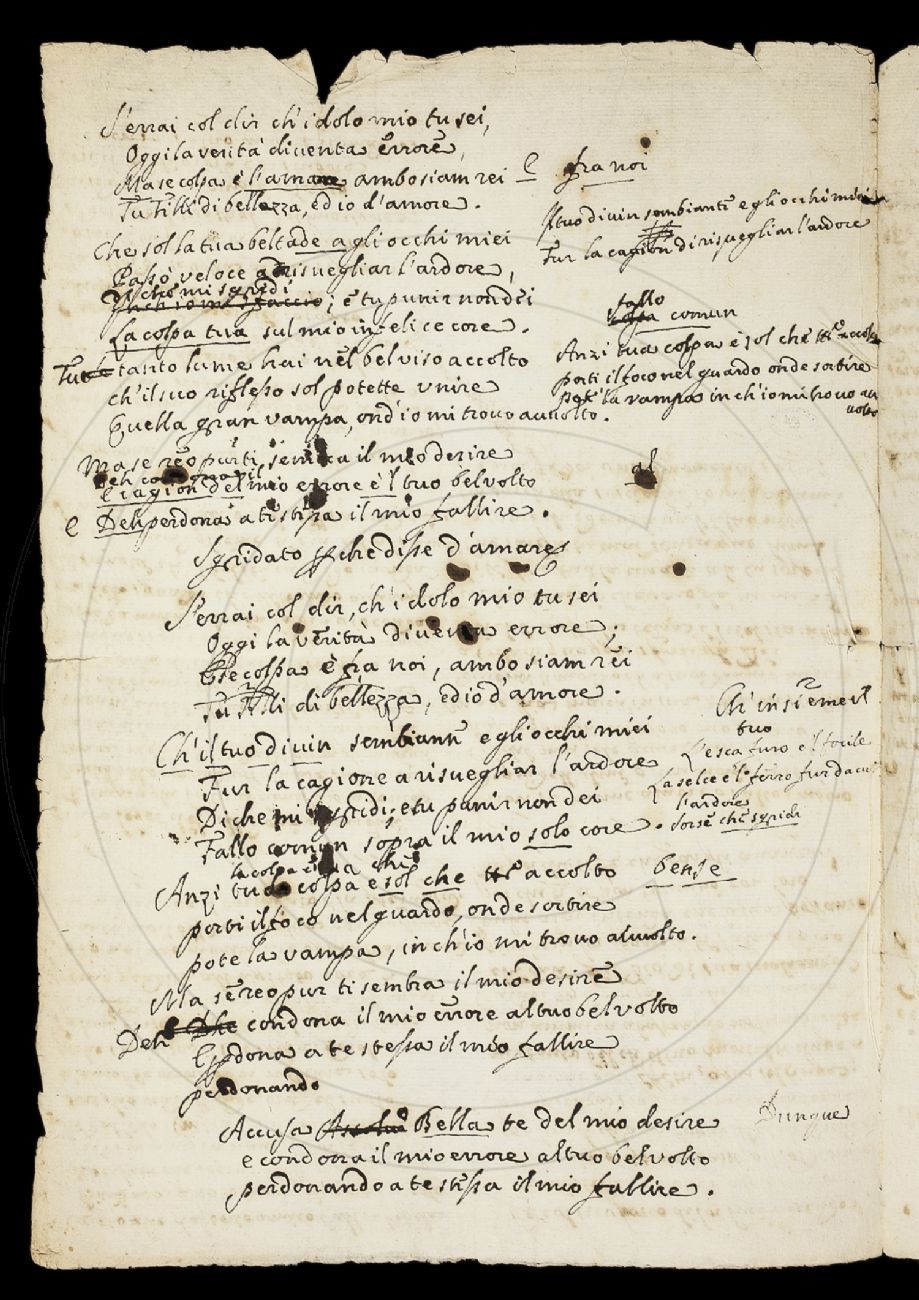 S'errai col dir ch'idolo mio tu sei,
Oggi la verità diventa errore,
Ma se colpa è l'amare ambo siam rei
Tu Filli di bellezza, ed io d'amore.
Che sol la tua beltade a gli occhi miei
Passò veloce a risvegliar l'ardore,
Di che mi sgridi; e tu punir non dei
La colpa tua sul mio infelice core.
Tu tanto lume hai nel bel viso accolto
ch'il suo riflesso sol potette unire
Quella gran vampa, ond'io mi trovo avvolto.
Ma se reo purti sembra il mio desire
Cagion del mio errore è 'l tuo bel volto
e Deh perdona a ti stessa il mio fallire.
e fra noi
Il tuo divin sembiante e gli occhi miei
Fur la cagion di risvegliar l'ardore
fallo
colpa comun
Anzi tua colpa è sol che tt'e accolto
porti il foco nel guardo onde sortire
potè la vampa in ch'io mi trovo av
volto
al
Sgridato che disse d'amare
S'errai col dir, ch'idolo mio tu sei
Oggi la verità diventa errore,
E se colpa è fra noi, ambo siam rei
Tu Filli di bellezza, ed io d'amore.
Ch'il tuo divin sembiante e gli occhi miei
Fur la cagione a risvegliar l'ardore
Di che mi sgridi; e tu punir non dei
Fallo comun sopra il mio solo core.
la colpa è tua che
Anzi tua colpa è sol che tt'e accolto bense
porti il foco nel guardo, onde sortire
pote la vampa, in ch'io mi trovo alvuolto.
Ma se reo pur ti sembra il mio desire
Deh condona il mio errore al tuo bel volto
E pdona a te stessa il mio fallire
perdonando
Ch'insieme il
tuo
L'esca furo e'l focile
La selce e'l ferro fur da cui
l'ardore
forse che sgridi
Accusa Bella te del mio desire Dunque
e condona il mio errore al tuo bel volto
perdonando a te stessa il mio fallire.